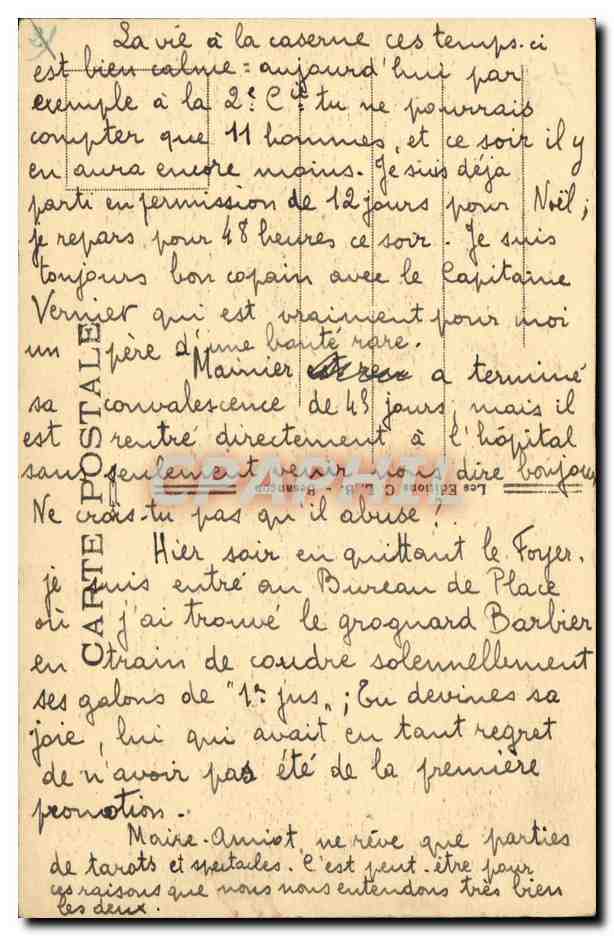 La vie à la caserne ces temps-ci
est bien calme = aujourd'hui par
exemple à la 2e Cie tu ne pourrais
compter que 11 hommes, et ce soir il y
en aura encore moins. Je suis déja
parti en permission de 12 jours pour Noël;
je repars pour 48 heures ce soir. Je suis
toujours bon copain avec le Capitaine
Vernier qui est vraiment pour moi
un père d'une bonté rare.
Mainier a terminé
sa convalescence de 45 jours, mais il
est rentré directement à l'hôpital
sans seulement venir nous dire bonjour
Ne crois-tu pas qu'il abuse!
Hier soir en quittant le Foyer,
je suis entré au Bureau de Place
où j'ai trouvé le grognard Barbier
en train de coudre solennellement
ses galons de "1er jus"; Tu devines sa
joie, lui qui avait eu tant regret
de n'avoir pas été de la première
promotion.
Maire-Amiot ne rêve que parties
de tarots et spectacles. C'est peut-être pour
ces raisons que nous nous entendons très bien
les deux.
CARTE POSTALE
Les Editions C. L., B. - Besançon
CPAPHIL